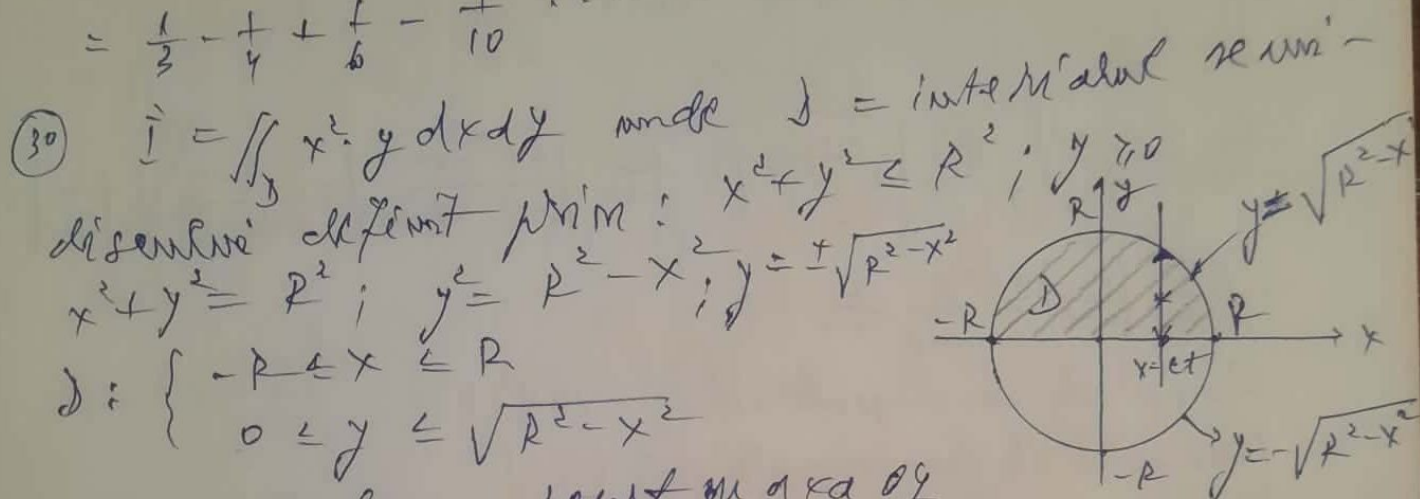 = 1/3 - 1/4 + 1/6 - 1/10
(30) I = ∬_D x²·y dxdy unde D = interiorul semi-
discului definit prin: x²+y² ≤ R² ; y ≥ 0
x²+y² = R² ; y² = R²-x² ; y = ±√(R²-x²)
D: { -R ≤ x ≤ R
0 ≤ y ≤ √(R²-x²)
R y
y=√(R²-x
D
-R R x
x=ct
-R y=-√(R²-x²)
axa Oy